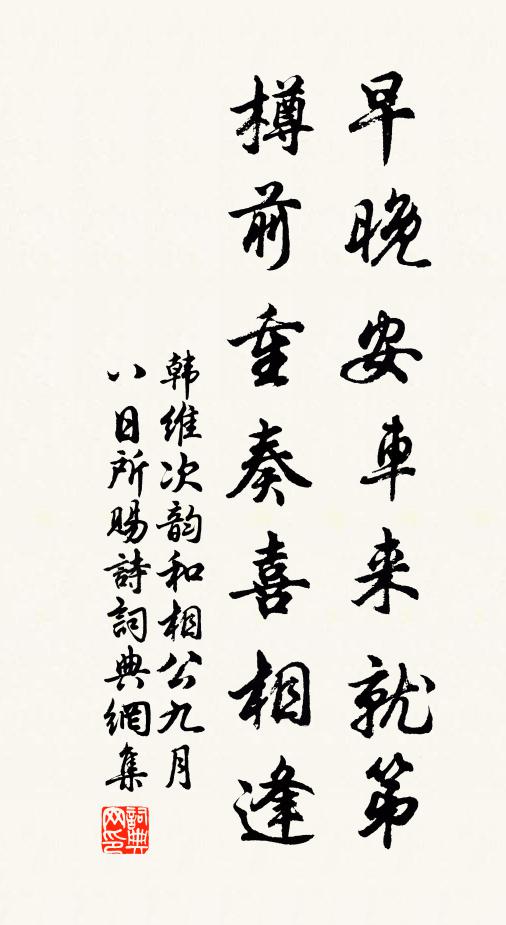 早晚安車来就第
樽前重奏喜相逢
韩维次韵和相公九月
八日所赐詩詞典網集
詞典网印